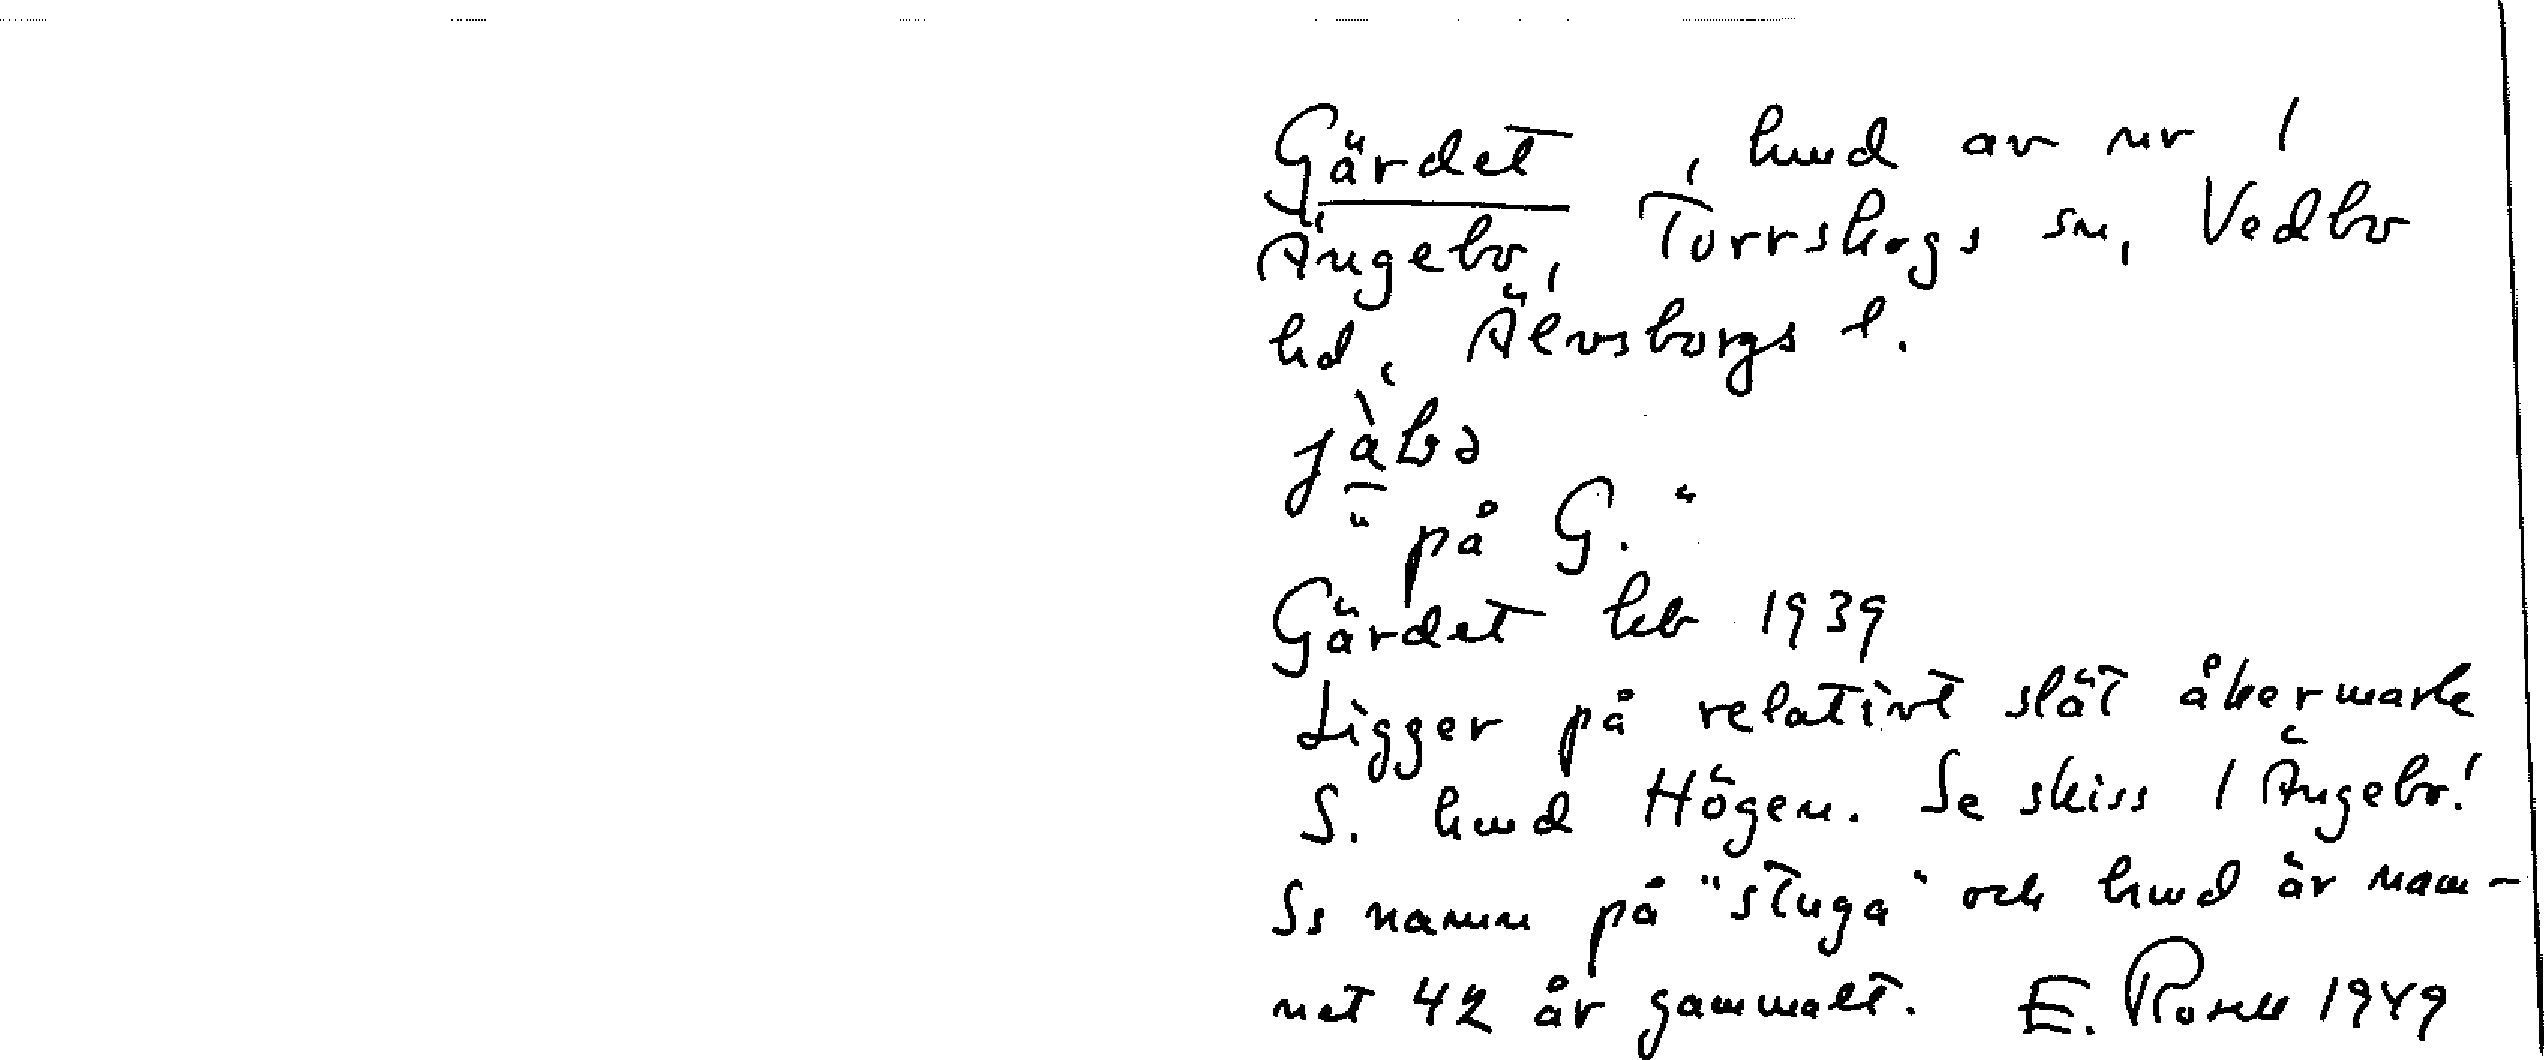 Gärdet, hmd av nr 1
Ängebo, Torrskogs sn, Vedbo
hd, Älvsborgs l.
"på G."
Gärdet kb 1939
Ligger på relativt slät åkermark
S. hmd Högen. Se skiss 1 Ängebo!
Ss namn på "stuga" och hmd är nam-
net 42 år gammalt. E. Rosell 1949